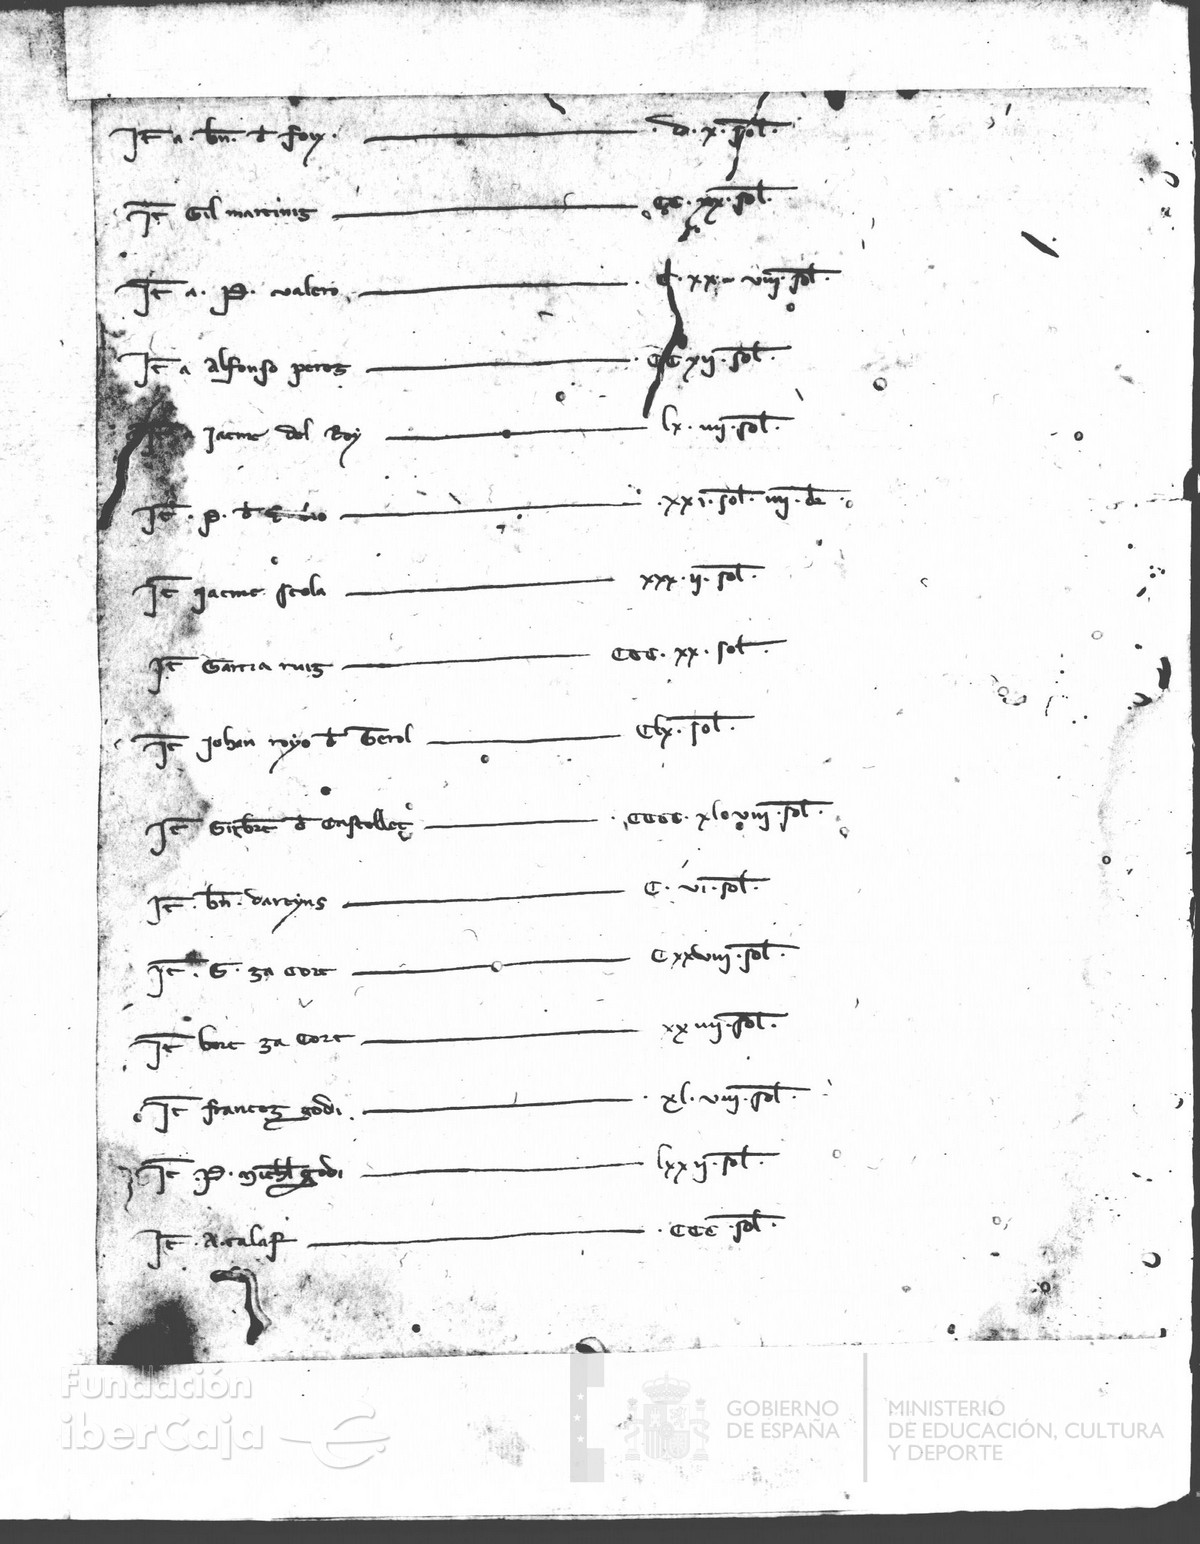 It a. bn. d foix. . x. sol.
It Gil martinez CC. xx. sol.
It a. P. valero C. xx. viij. sol.
It a Alfonso perez CC xij. sol.
Jacme del Roy lx. iiij. sol.
It. P. d xxi. sol. iiij. dr.
It Jacme scola xxx. ij. sol.
It Garcia ruiz CCC. xx. sol.
It Johan royo d Terol Clx. sol.
It d CCCC. xl viij. sol.
It. bn. darcyns C. vi. sol.
It. G. za Cort C xxviij. sol.
It bort za Cort xx iiij. sol.
It francez godi. xl. viij. sol.
It P. Michl godi lxx ij. sol.
It. A. calaf CCC sol.
Fundación
iberCaja
GOBIERNO
DE ESPAÑA
MINISTERIO
DE EDUCACIÓN, CULTURA
Y DEPORTE